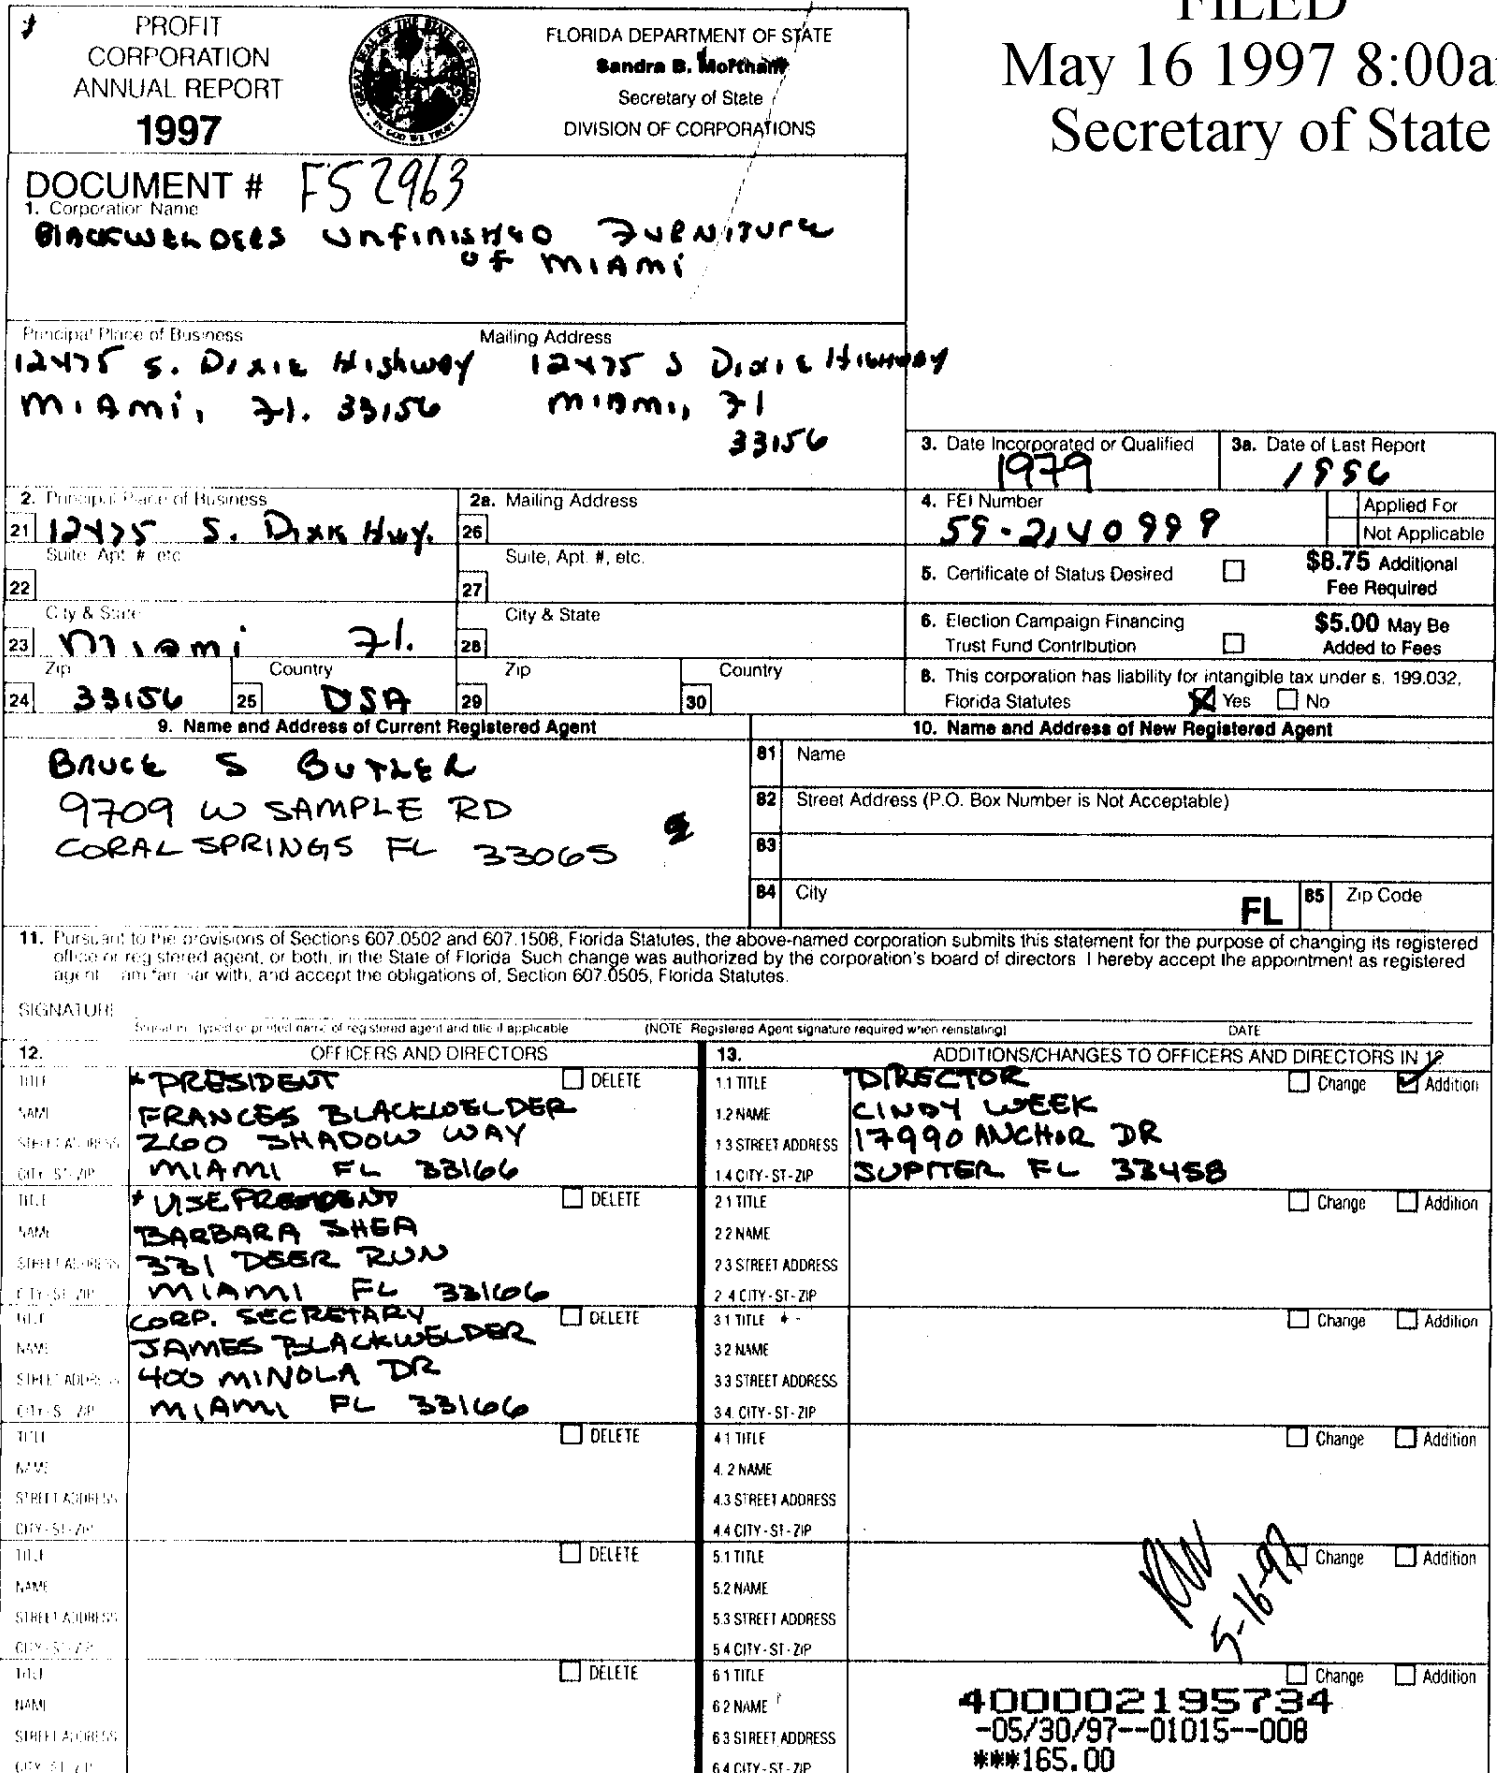 PROFIT
CORPORATION
ANNUAL REPORT
1997
FLORIDA DEPARTMENT OF STATE
Sandra B. Mortham
Secretary of State
DIVISION OF CORPORATIONS
FILED
May 16 1997 8:00a
Secretary of State
DOCUMENT # F52963
1. Corporation Name
BLACKWELDERS UNFINISHED FURNITURE
OF MIAMI
Principal Place of Business
12475 S. DIXIE HIGHWAY
MIAMI, Fl. 33156
Mailing Address
12475 S DIXIE HIGHWAY
MIAMI, Fl
33156
3. Date Incorporated or Qualified
1979
3a. Date of Last Report
1996
2. Principal Place of Business
21 12475 S. DIXIE Hwy.
2a. Mailing Address
26
4. FEI Number
59-2140999
Applied For
Not Applicable
Suite, Apt. #, etc.
22
Suite, Apt. #, etc.
27
5. Certificate of Status Desired
$8.75 Additional
Fee Required
City & State
23 Miami Fl.
City & State
28
6. Election Campaign Financing
Trust Fund Contribution
$5.00 May Be
Added to Fees
Zip
24 33156
Country
25 USA
Zip
29
Country
30
8. This corporation has liability for intangible tax under s. 199.032,
Florida Statutes Yes No
9. Name and Address of Current Registered Agent
BRUCE S BUTLER
9709 W SAMPLE RD
CORAL SPRINGS FL 33065
10. Name and Address of New Registered Agent
81 Name
82 Street Address (P.O. Box Number is Not Acceptable)
83
84 City
FL
85 Zip Code
11. Pursuant to the provisions of Sections 607.0502 and 607.1508, Florida Statutes, the above-named corporation submits this statement for the purpose of changing its registered
office or registered agent, or both, in the State of Florida. Such change was authorized by the corporation's board of directors. I hereby accept the appointment as registered
agent. I am familiar with, and accept the obligations of, Section 607.0505, Florida Statutes.
SIGNATURE
Signature, typed or printed name of registered agent and title if applicable
(NOTE Registered Agent signature required when reinstating)
DATE
12. OFFICERS AND DIRECTORS
TITLE * PRESIDENT DELETE
NAME FRANCES BLACKWELDER
STREET ADDRESS 260 SHADOW WAY
CITY-ST-ZIP MIAMI FL 33166
TITLE * VISE PRESIDENT DELETE
NAME BARBARA SHEA
STREET ADDRESS 331 DEER RUN
CITY-ST-ZIP MIAMI FL 33166
TITLE CORP. SECRETARY DELETE
NAME JAMES BLACKWELDER
STREET ADDRESS 400 MINOLA DR
CITY-ST-ZIP MIAMI FL 33166
TITLE DELETE
NAME
STREET ADDRESS
CITY-ST-ZIP
TITLE DELETE
NAME
STREET ADDRESS
CITY-ST-ZIP
TITLE DELETE
NAME
STREET ADDRESS
CITY-ST-ZIP
13. ADDITIONS/CHANGES TO OFFICERS AND DIRECTORS IN 12
1.1 TITLE DIRECTOR Change Addition
1.2 NAME CINDY WEEK
1.3 STREET ADDRESS 17990 ANCHOR DR
1.4 CITY-ST-ZIP JUPITER FL 33458
2.1 TITLE Change Addition
2.2 NAME
2.3 STREET ADDRESS
2.4 CITY-ST-ZIP
3.1 TITLE Change Addition
3.2 NAME
3.3 STREET ADDRESS
3.4. CITY-ST-ZIP
4.1 TITLE Change Addition
4.2 NAME
4.3 STREET ADDRESS
4.4 CITY-ST-ZIP
5.1 TITLE Change Addition
5.2 NAME
5.3 STREET ADDRESS
5.4 CITY-ST-ZIP
5-16-97
6.1 TITLE Change Addition
6.2 NAME
6.3 STREET ADDRESS
6.4 CITY-ST-ZIP
400002195734
-05/30/97--01015--008
***165.00